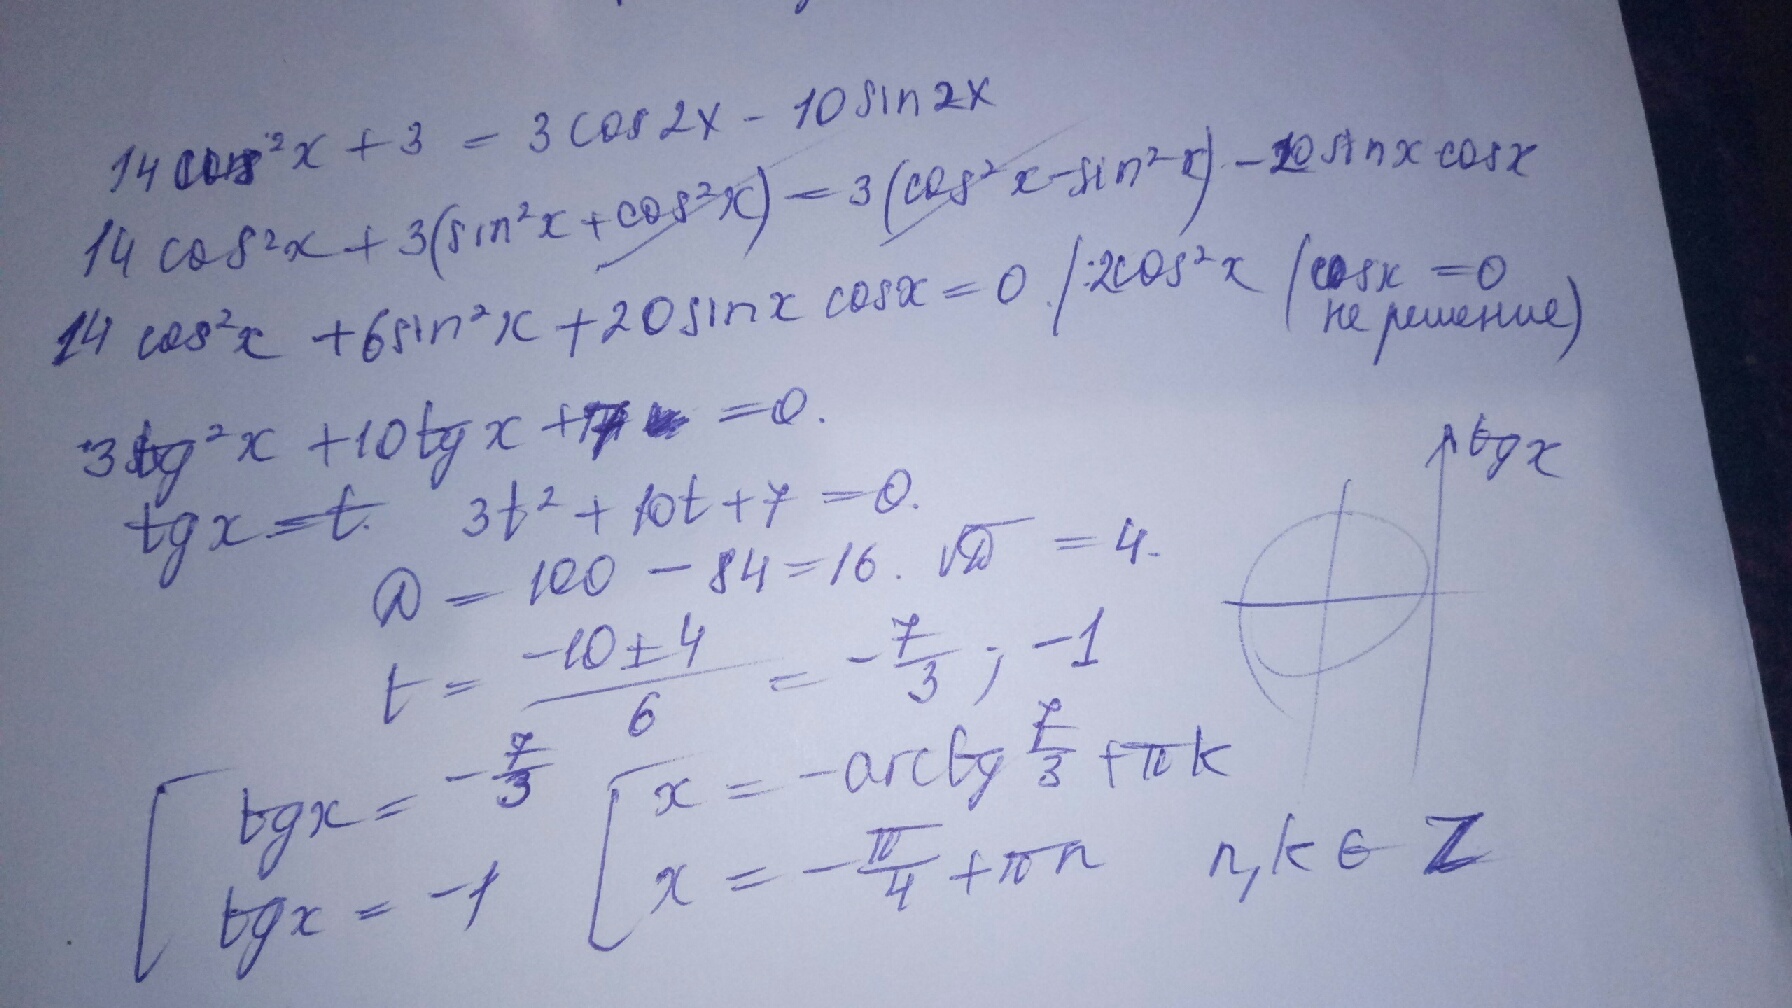 14 cos²x + 3 = 3 cos 2x - 10 sin 2x
14 cos²x + 3(sin²x + cos²x) = 3(cos²x - sin²x) - 20 sin x cos x
14 cos²x + 6 sin²x + 20 sin x cos x = 0 /:2cos²x (cos x = 0
не решение)
3 tg²x + 10 tg x + 7 = 0.
tg x
tg x = t. 3t² + 10t + 7 = 0.
D = 100 - 84 = 16. √D = 4.
t = (-10 ± 4)/6 = -7/3; -1
[ tg x = -7/3 [ x = -arctg 7/3 + πk
tg x = -1 x = -π/4 + πn n, k ∈ Z